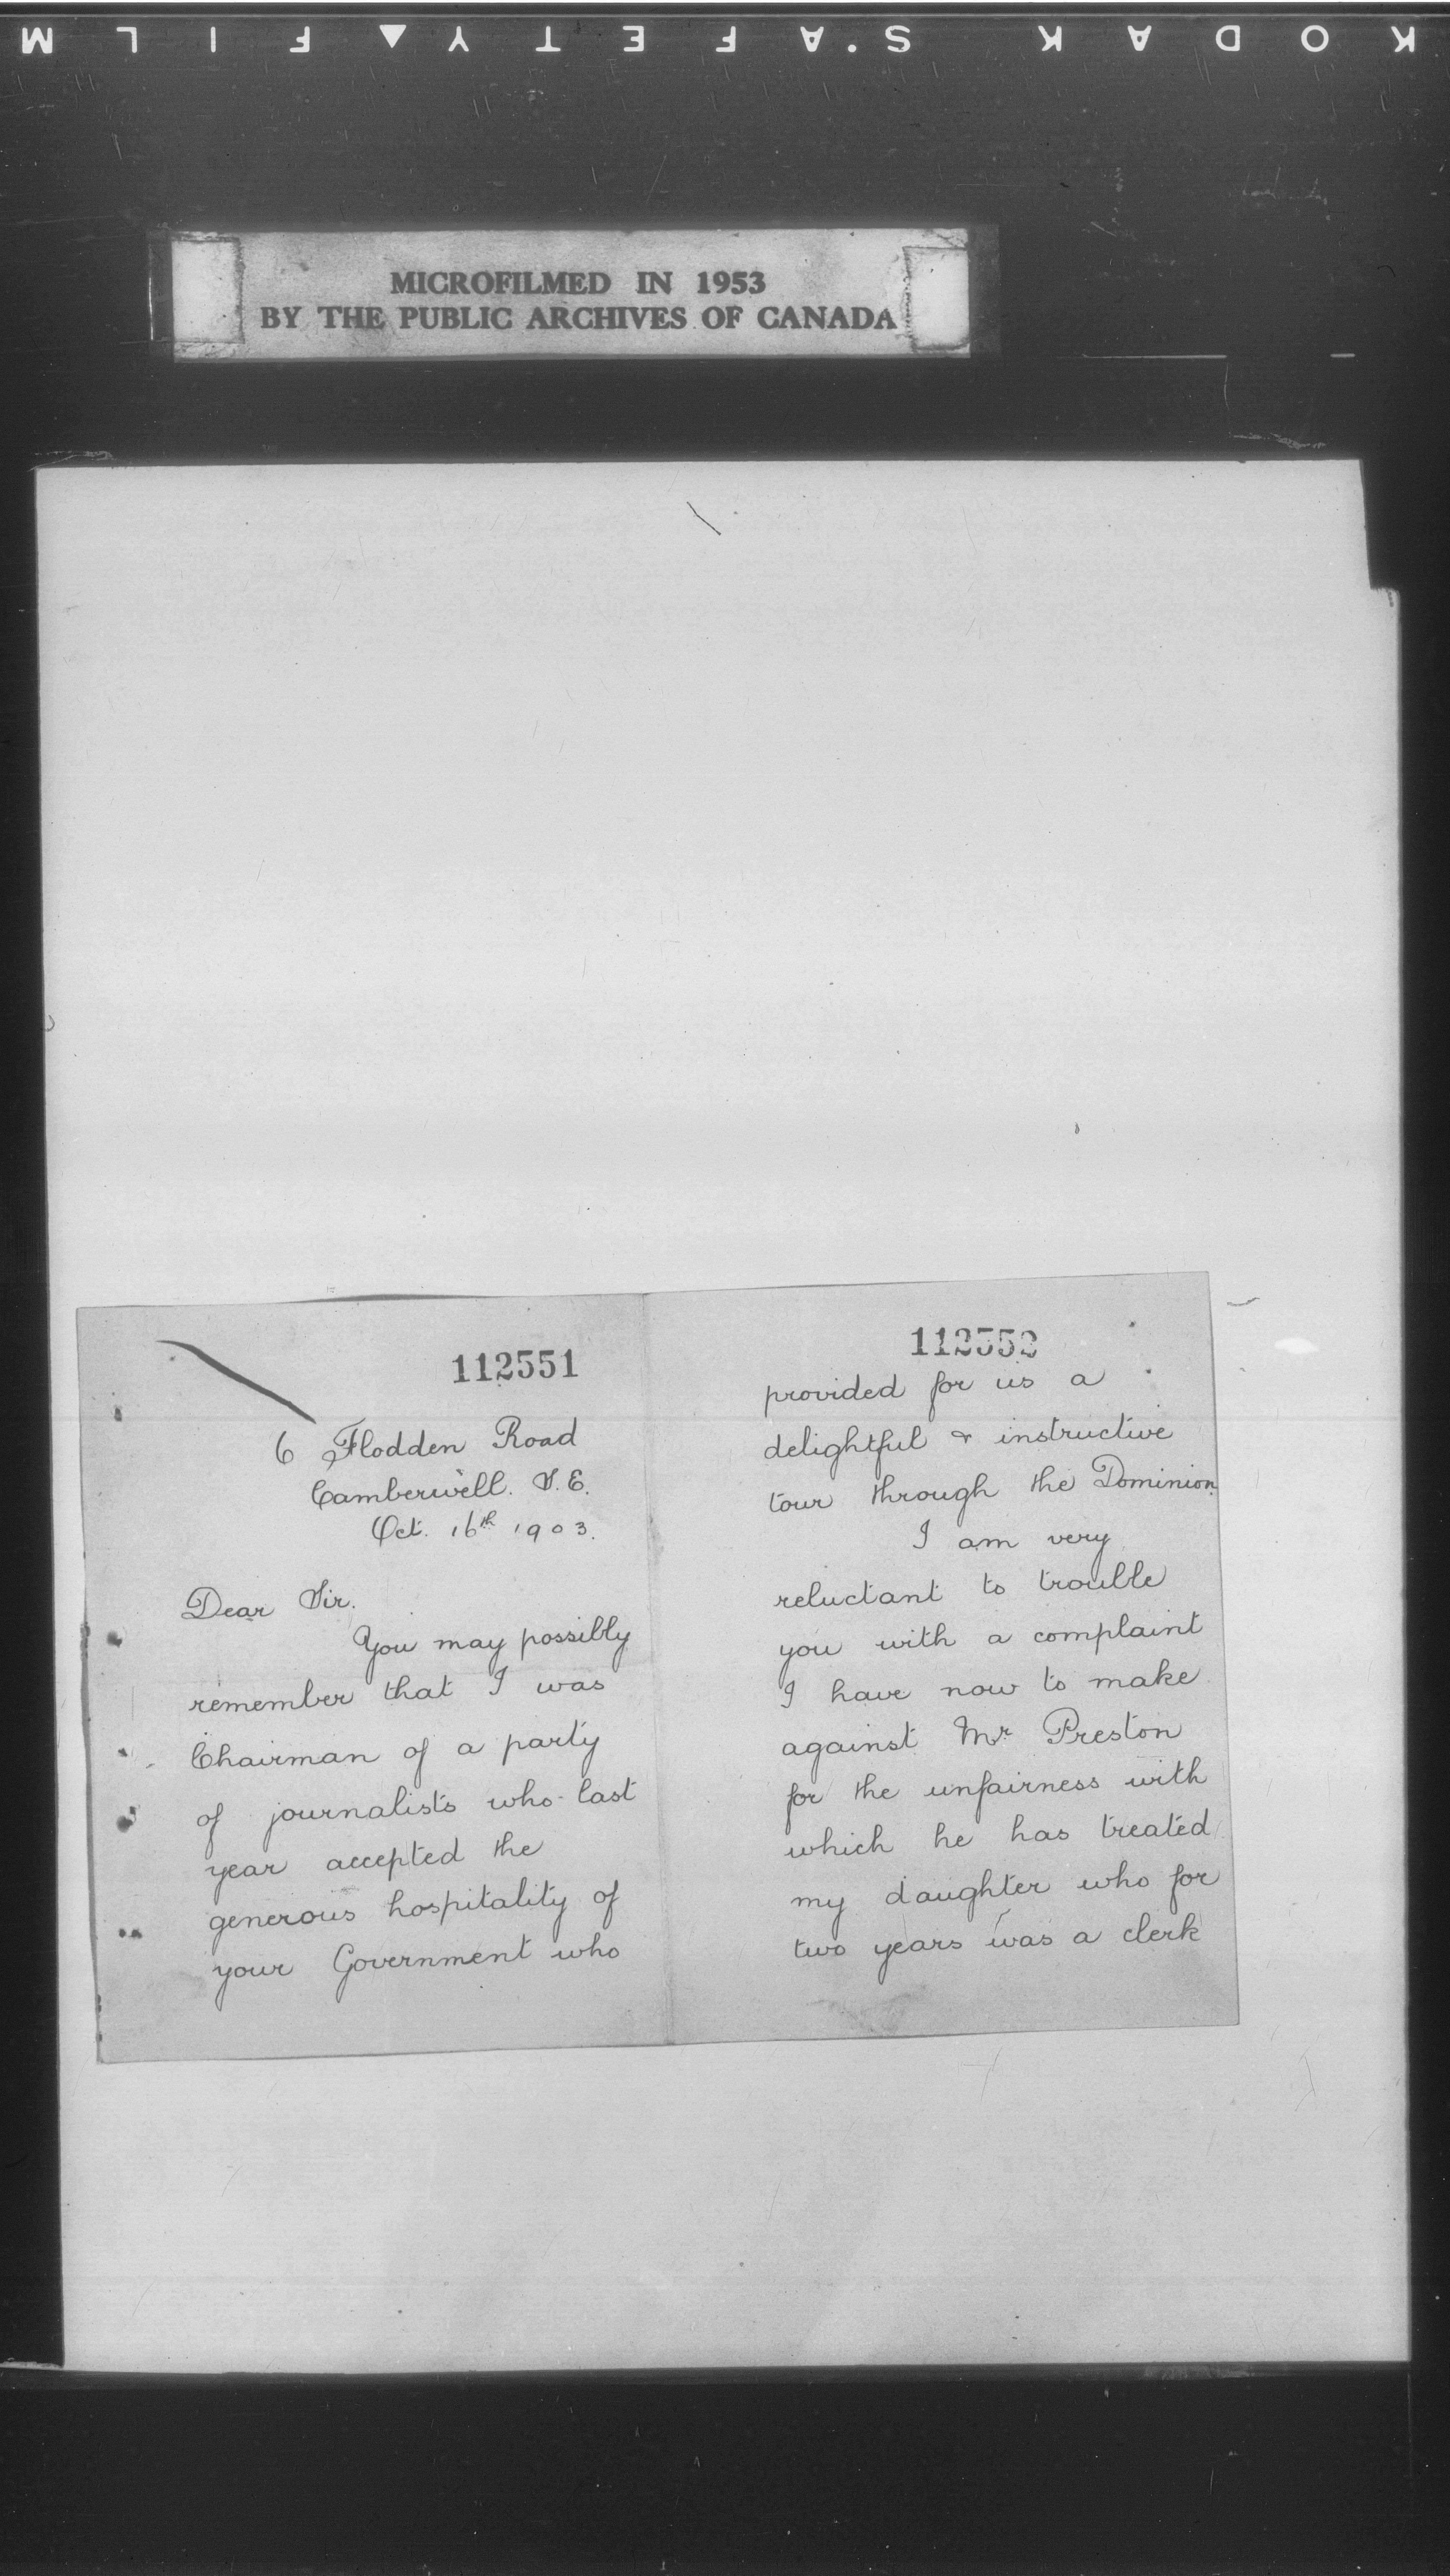 KODAK SAFETY FILM
MICROFILMED IN 1953
BY THE PUBLIC ARCHIVES OF CANADA
112551
6 Flodden Road
Camberwell. S.E.
Oct. 16th 1903.
Dear Sir.
You may possibly
remember that I was
Chairman of a party
of journalists who last
year accepted the
generous hospitality of
your Government who
112552
provided for us a
delightful & instructive
tour through the Dominion.
I am very
reluctant to trouble
you with a complaint
I have now to make
against Mr Preston
for the unfairness with
which he has treated
my daughter who for
two years was a clerk